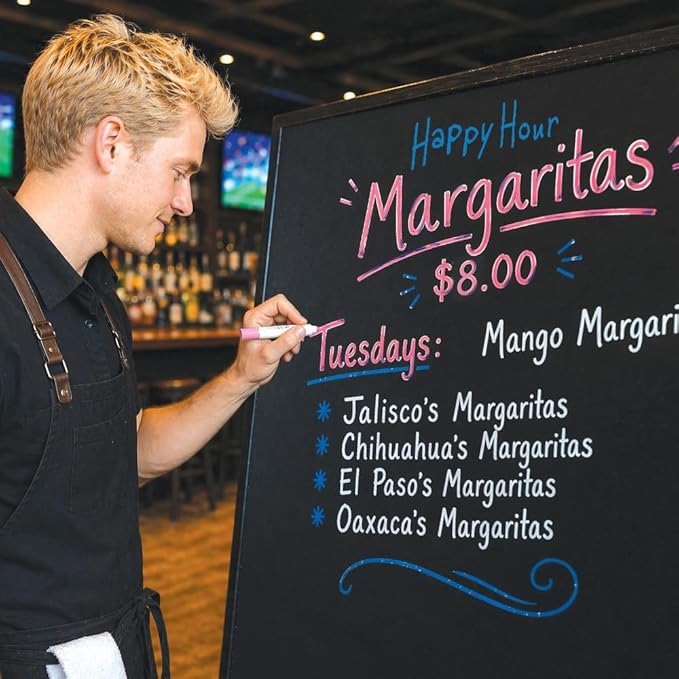 Happy Hour
Margaritas
$8.00
Tuesdays:
Mango Margari
Jalisco's Margaritas
Chihuahua's Margaritas
El Paso's Margaritas
Oaxaca's Margaritas